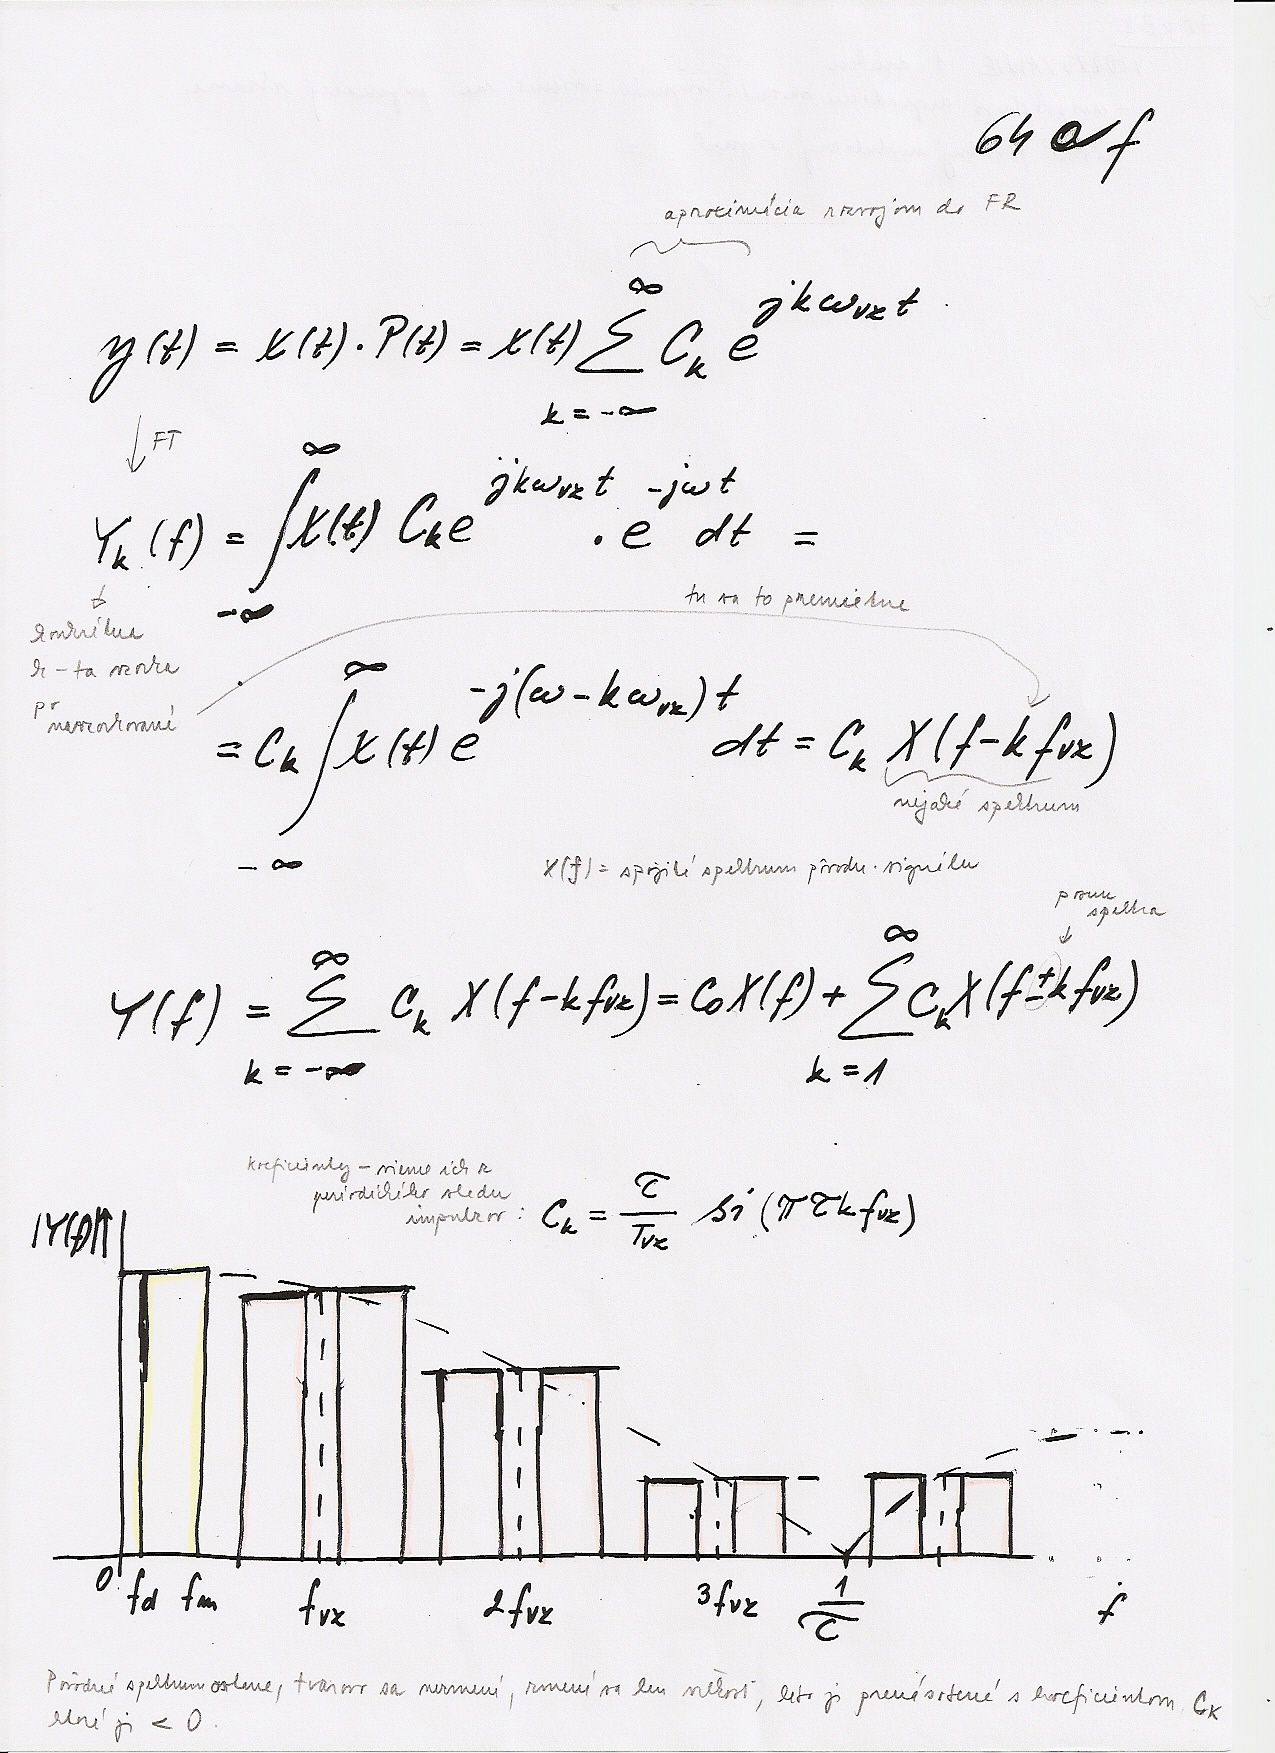 64 a f
aproximácia rozvojom do FR
y(t) = X(t) · P(t) = X(t) ∑_{k=-∞}^{∞} C_k e^{jkω_{vz}t}
↓ FT
Y_k(f) = ∫_{-∞}^{∞} X(t) C_k e^{jkω_{vz}t} · e^{-jωt} dt =
tu sa to premietne
konkrétna
k-ta vzorka
navzorkované
= C_k ∫_{-∞}^{∞} X(t) e^{-j(ω-kω_{vz})t} dt = C_k X(f-k f_{vz})
nejaké spektrum
X(f) = spojité spektrum pôvodn. signálu
posun
spektra
Y(f) = ∑_{k=-∞}^{∞} C_k X(f-k f_{vz}) = C_0 X(f) + ∑_{k=1}^{∞} C_k X(f±k f_{vz})
koeficienty - vieme ich z
periodického sledu
impulzov :
C_k = τ/T_{vz} si(π τ k f_{vz})
|Y(f)|
0 fd fm f_{vz} 2f_{vz} 3f_{vz} 1/τ f
Pôvodné spektrum ostane, tvarovo sa nezmení, zmení sa len veľkosť, lebo je prenásobené s koeficientom C_k
ktoré je < 0.